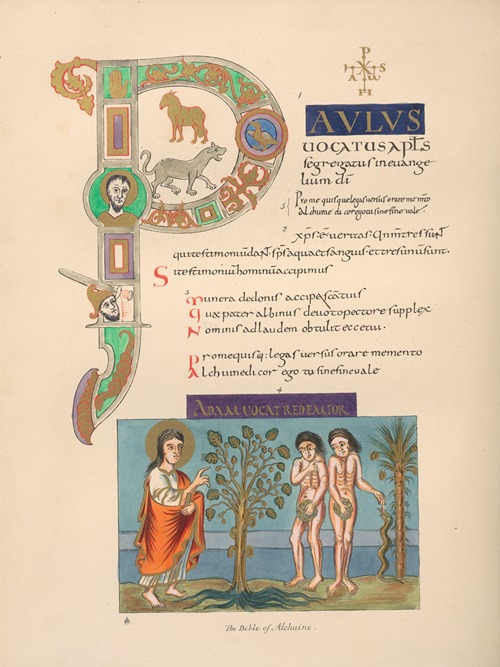 1
PAVLVS
uocatus apłs
segregatus ineuange
lium dī
5 Pro me quisque legas uersus orare memto
alchuine dicor ego tu sine fine uale.
2 xp̄s ē ueritas. Qnm tres sunt
qui testimoniū dant. sp̄s aqua et sanguis. et tres unum sunt.
Si testimoniū hominū accipimus
3 Munera de donis accipe sca tuis
Quae pater albinus deuoto pectore supplex
Nominis ad laudem obtulit ecce tui.
Pro me quisq: legas uersus orare memento
Alchuine dicor ego tu sine fine uale
4
ADAM UOCAT REDEMTOR
The Bible of Alchuine.